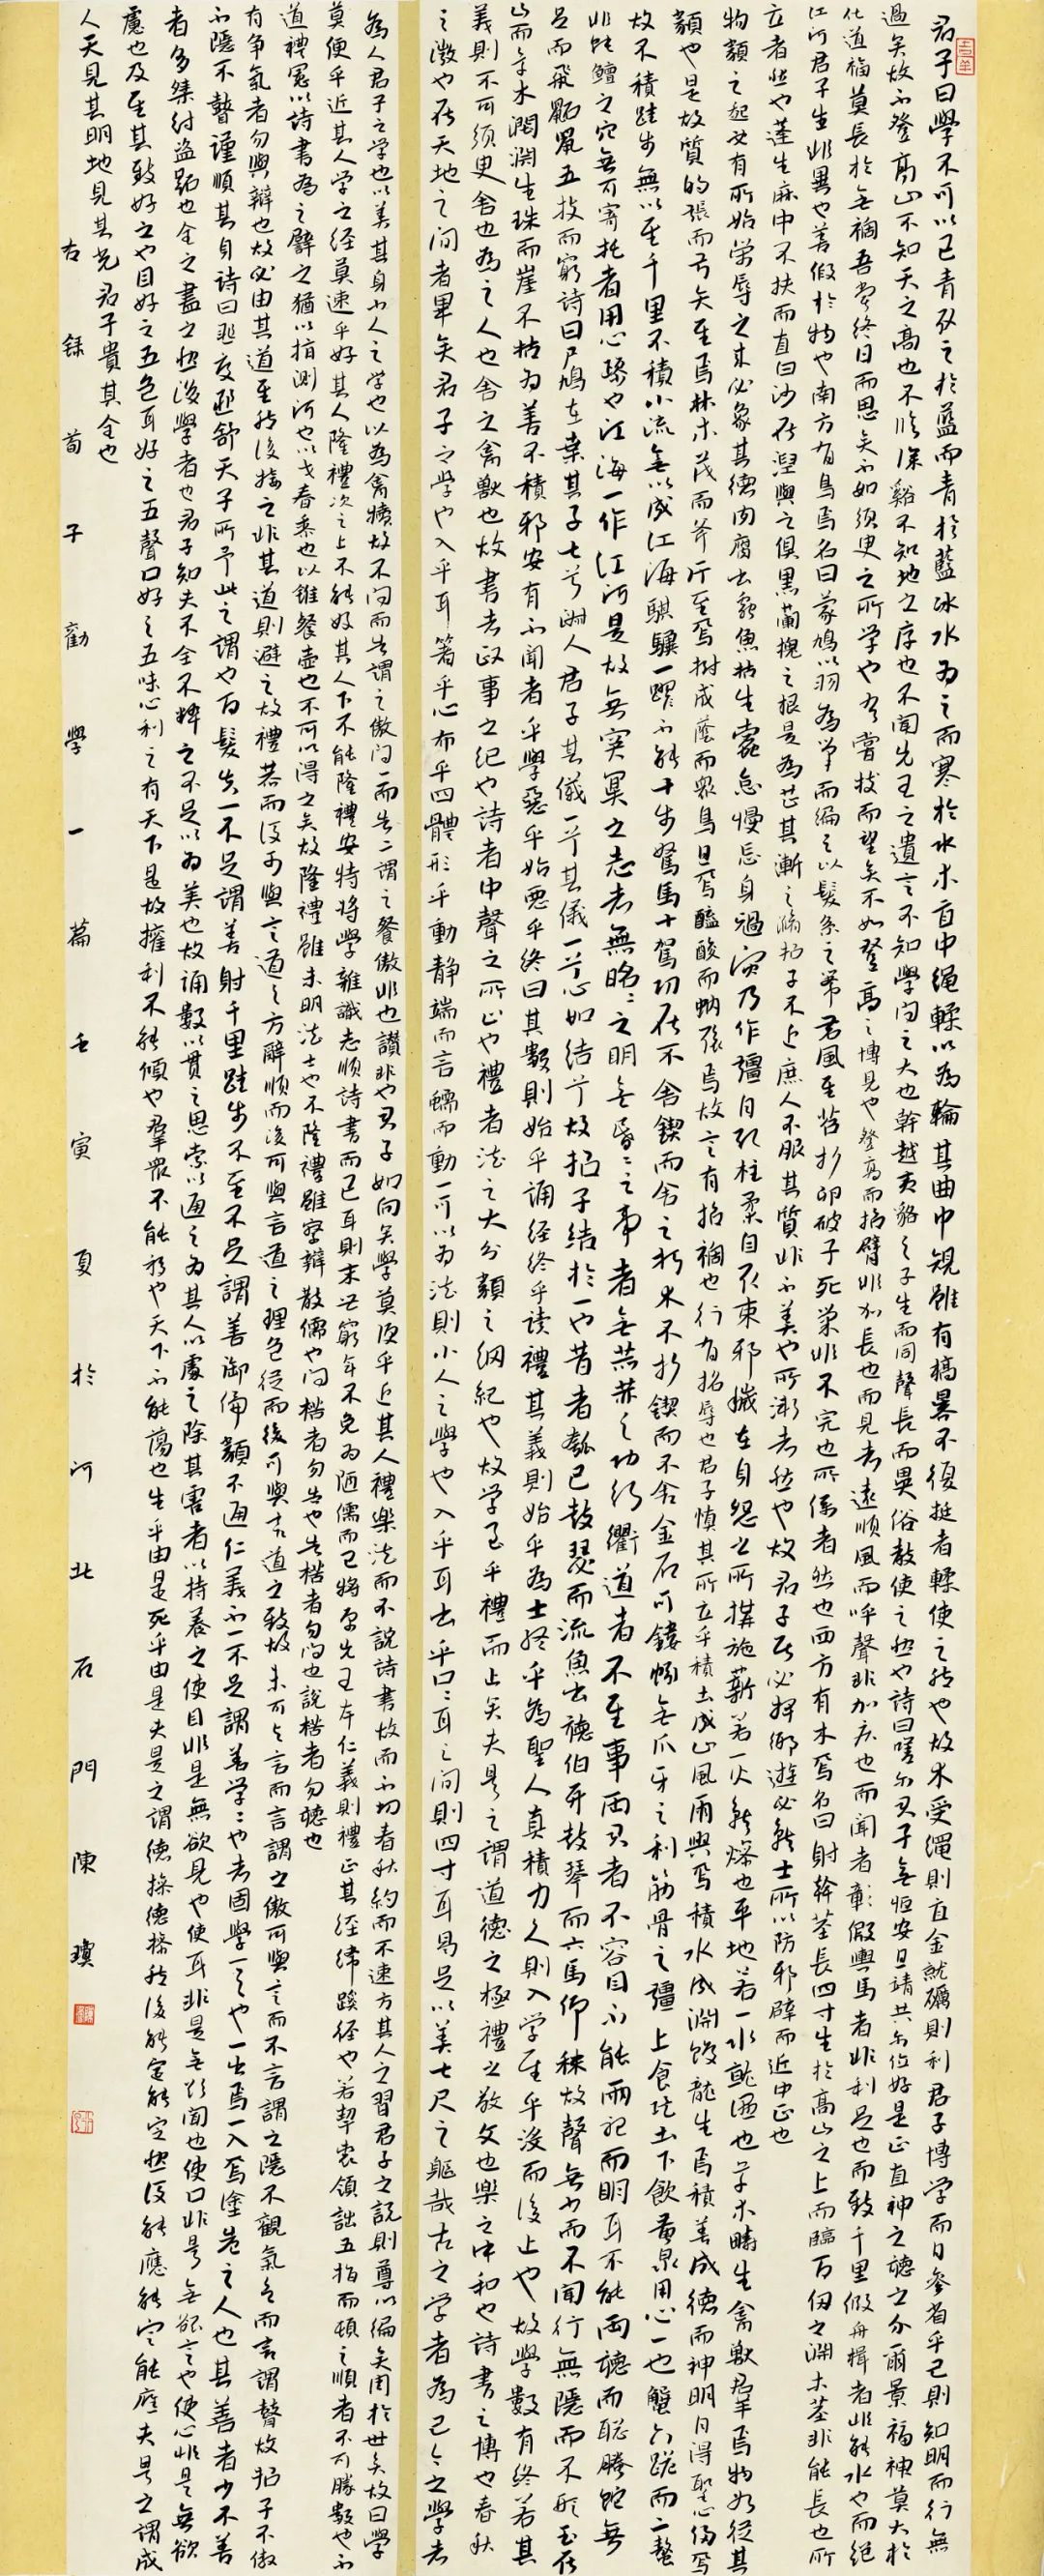 君子曰學不可以已青取之於藍而青於藍冰水為之而寒於水木直中繩輮以為輪其曲中規雖有槁暴不復挺者輮使之然也故木受繩則直金就礪則利君子博學而日參省乎己則知明而行無
過矣故不登高山不知天之高也不臨深谿不知地之厚也不聞先王之遺言不知學問之大也幹越夷貉之子生而同聲長而異俗教使之然也詩曰嗟爾君子無恆安息靖共爾位好是正直神之聽之介爾景福神莫大於
化道福莫長於無禍吾嘗終日而思矣不如須臾之所學也吾嘗跂而望矣不如登高之博見也登高而招臂非加長也而見者遠順風而呼聲非加疾也而聞者彰假輿馬者非利足也而致千里假舟楫者非能水也而絕
江河君子生非異也善假於物也南方有鳥焉名曰蒙鳩以羽為巢而編之以髮系之葦苕風至苕折卵破子死巢非不完也所係者然也西方有木焉名曰射幹莖長四寸生於高山之上而臨百仞之淵木莖非能長也所
立者然也蓬生麻中不扶而直白沙在涅與之俱黑蘭槐之根是為芷其漸之滫君子不近庶人不服其質非不美也所漸者然也故君子居必擇鄉遊必就士所以防邪辟而近中正也
物類之起必有所始榮辱之來必象其德肉腐出蟲魚枯生蠹怠慢忘身禍災乃作彊自取柱柔自取束邪穢在身怨之所構施薪若一火就燥也平地若一水就濕也草木疇生禽獸群焉物各從其
類也是故質的張而弓矢至焉林木茂而斧斤至焉樹成蔭而眾鳥息焉醯酸而蚋聚焉故言有招禍也行有招辱也君子慎其所立乎積土成山風雨興焉積水成淵蛟龍生焉積善成德而神明自得聖心備焉
故不積跬步無以至千里不積小流無以成江海騏驥一躍不能十步駑馬十駕功在不舍鍥而舍之朽木不折鍥而不舍金石可鏤螾無爪牙之利筋骨之彊上食埃土下飲黃泉用心一也蟹六跪而二螯
非蛇鱣之穴無可寄托者用心躁也江海一作江河是故無冥冥之志者無昭昭之明無惛惛之事者無赫赫之功行衢道者不至事兩君者不容目不能兩視而明耳不能兩聽而聰螣蛇無
足而飛鼫鼠五技而窮詩曰尸鳩在桑其子七兮淑人君子其儀一兮其儀一兮心如結兮故君子結於一也昔者瓠巴鼓瑟而流魚出聽伯牙鼓琴而六馬仰秣故聲無小而不聞行無隱而不形玉在
山而草木潤淵生珠而崖不枯為善不積邪安有不聞者乎學惡乎始惡乎終曰其數則始乎誦經終乎讀禮其義則始乎為士終乎為聖人真積力久則入學至乎沒而後止也故學數有終若其
義則不可須臾舍也為之人也舍之禽獸也故書者政事之紀也詩者中聲之所止也禮者法之大分類之綱紀也故學至乎禮而止矣夫是之謂道德之極禮之敬文也樂之中和也詩書之博也春秋
之微也在天地之間者畢矣君子之學也入乎耳著乎心布乎四體形乎動靜端而言蠕而動一可以為法則小人之學也入乎耳出乎口口耳之間則四寸耳曷足以美七尺之軀哉古之學者為己今之學者
為人君子之學也以美其身小人之學也以為禽犢故不問而告謂之傲問一而告二謂之囋傲非也囋非也君子如向矣學莫便乎近其人禮樂法而不說詩書故而不切春秋約而不速方其人之習君子之說則尊以徧矣周於世矣故曰學
莫便乎近其人學之經莫速乎好其人隆禮次之上不能好其人下不能隆禮安特將學雜識志順詩書而已耳則末世窮年不免為陋儒而已將原先王本仁義則禮正其經緯蹊徑也若挈裘領詘五指而頓之順者不可勝數也不
道禮憲以詩書為之譬之猶以指測河也以戈舂黍也以錐餐壺也不可以得之矣故隆禮雖未明法士也不隆禮雖察辯散儒也問楛者勿告也告楛者勿問也說楛者勿聽也
有爭氣者勿與辯也故必由其道至然後接之非其道則避之故禮恭而後可與言道之方辭順而後可與言道之理色從而後可與言道之致故未可與言而言謂之傲可與言而不言謂之隱不觀氣色而言謂瞽故君子不傲
不隱不瞽謹順其身詩曰匪交匪舒天子所予此之謂也百發失一不足謂善射千里跬步不至不足謂善御倫類不通仁義不一不足謂善學學也者固學一之也一出焉一入焉塗巷之人也其善者少不善
者多桀紂盜跖也全之盡之然後學者也君子知夫不全不粹之不足以為美也故誦數以貫之思索以通之為其人以處之除其害者以持養之使目非是無欲見也使耳非是無欲聞也使口非是無欲言也使心非是無欲
慮也及至其致好之也目好之五色耳好之五聲口好之五味心利之有天下是故權利不能傾也群眾不能移也天下不能蕩也生乎由是死乎由是夫是之謂德操德操然後能定能定然後能應能定能應夫是之謂成
人天見其明地見其光君子貴其全也
右錄荀子勸學一篇壬寅夏於河北石門陳瓊